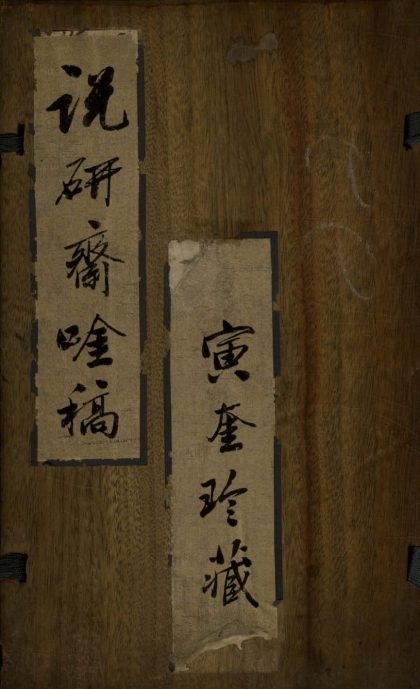 説研齋唫稿
寅奎珍藏